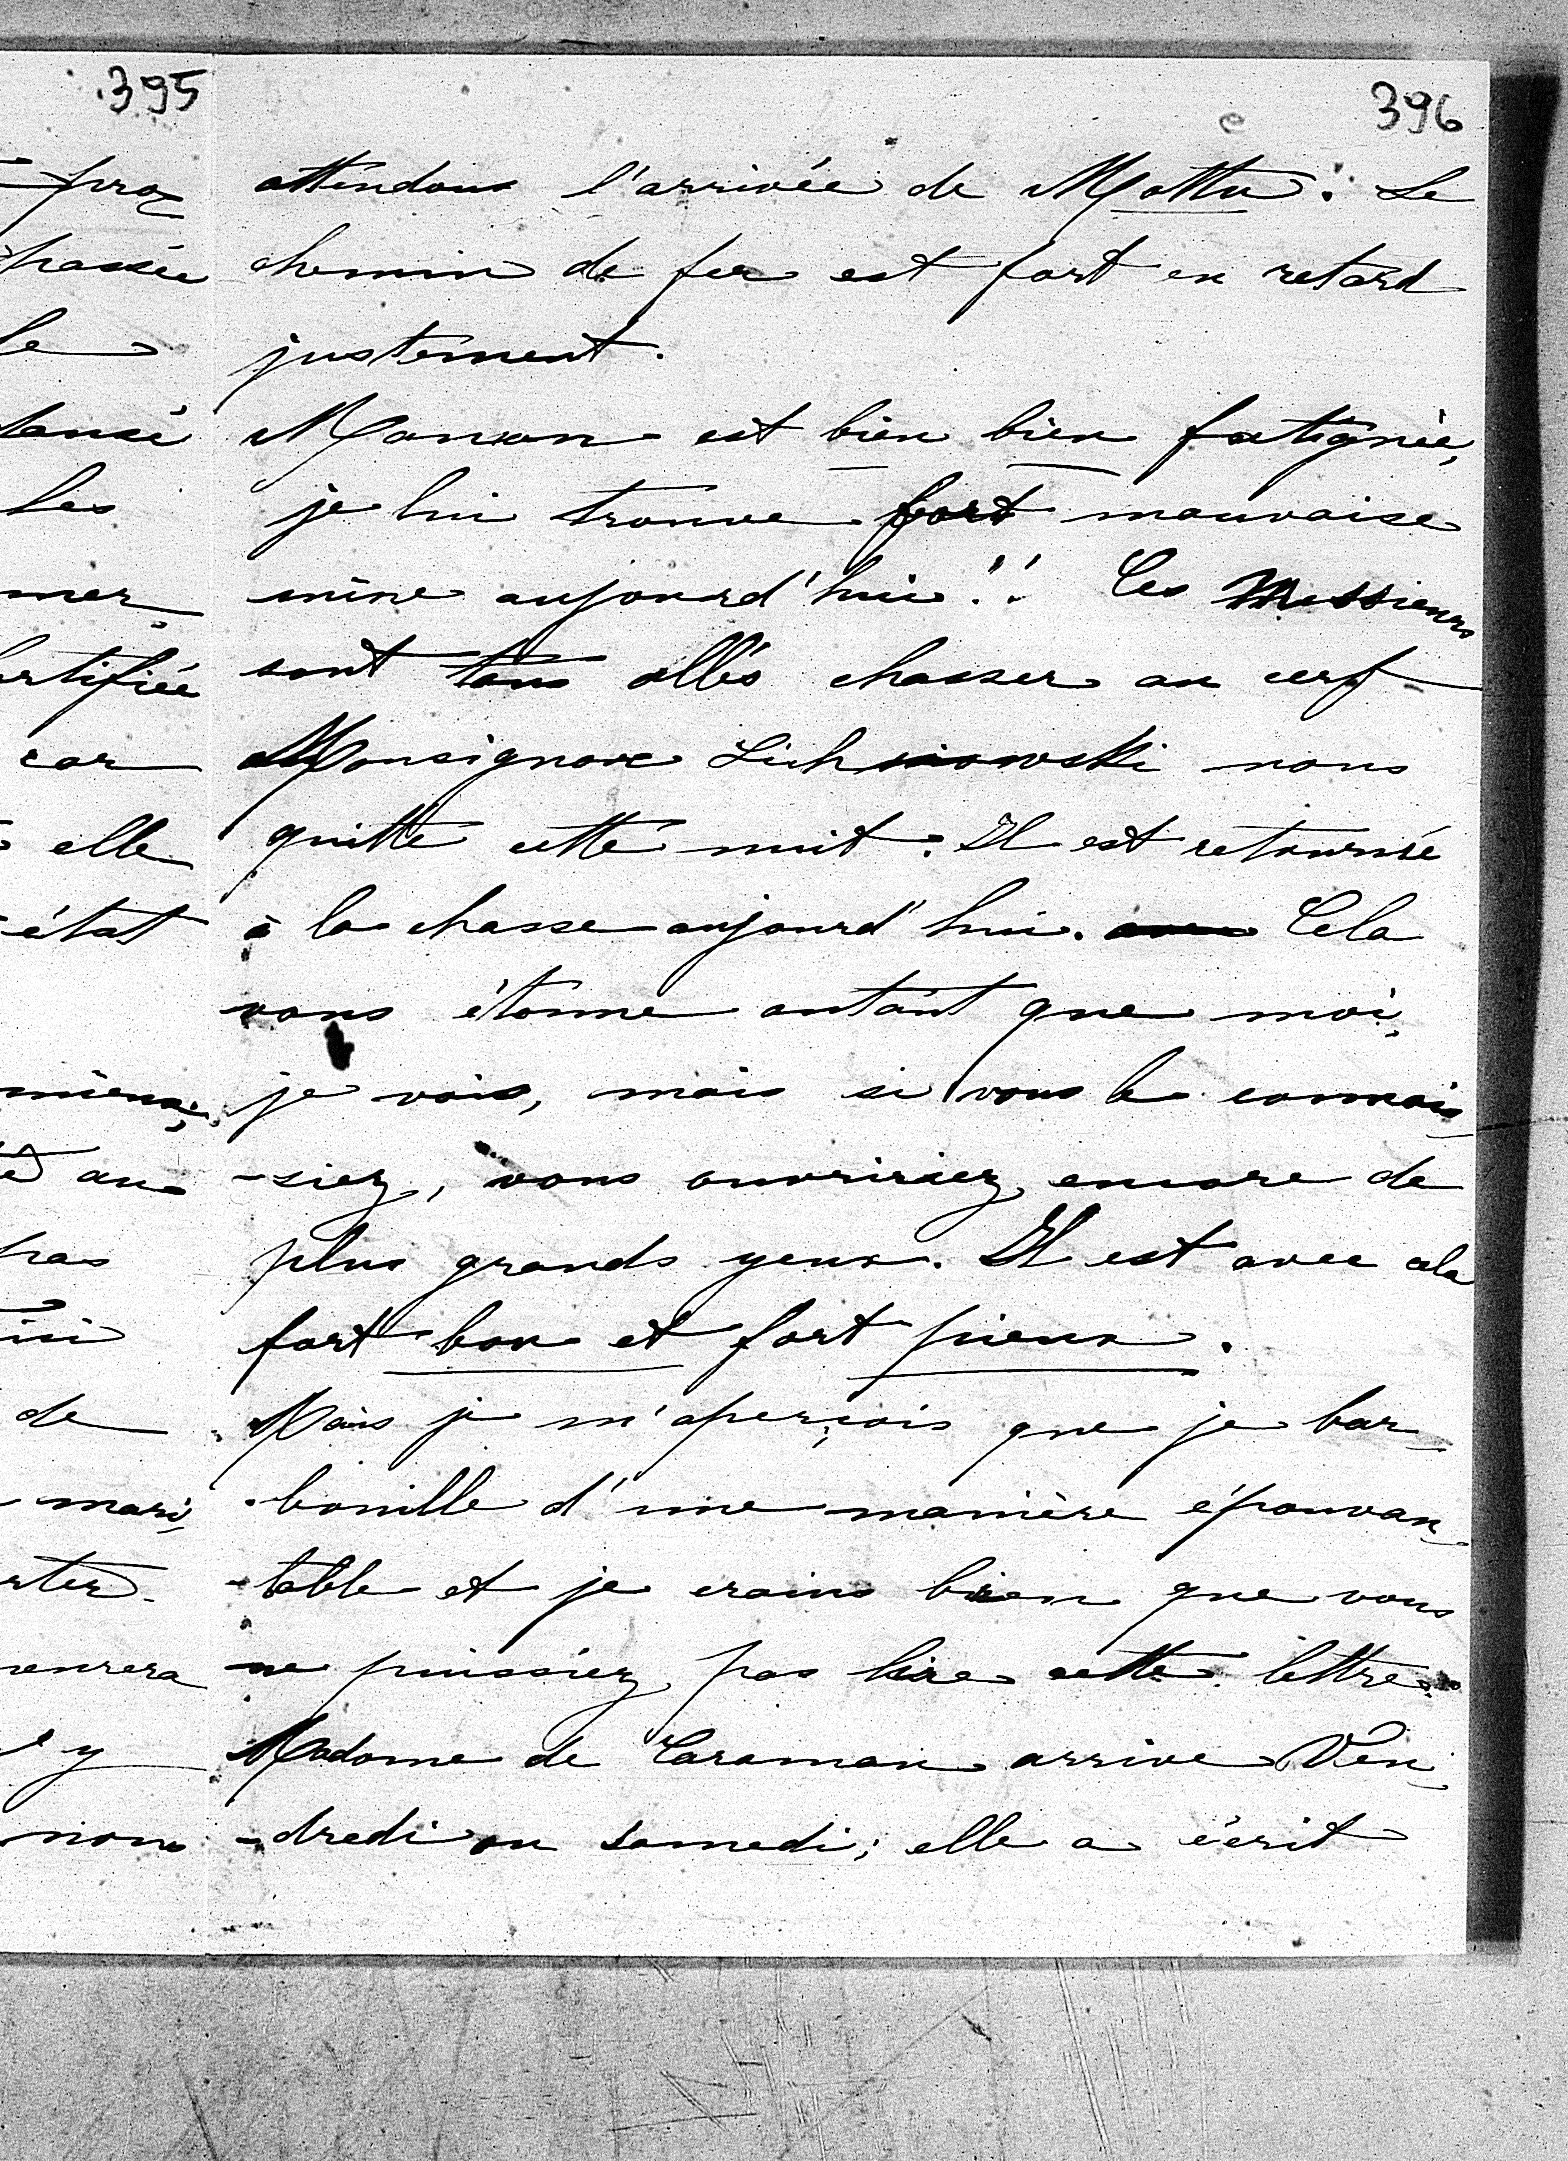 395
pro
chassée
le
les
mer
car
elle
état
mieux;
au
pas
ici
de
mari
y
nous
396
attendons l'arrivée de Mottu. Le
chemin de fer est fort en retard
justement.
Maman est bien bien fatiguée,
je lui trouve fort mauvaise
mine aujourd'hui!! Ces Messieurs
sont tous allés chasser au cerf
Monsignore Lichnowski nous
quitte cette nuit. Il est retourné
à la chasse aujourd'hui. Cela
vous étonne autant que moi,
je vois, mais si vous le connais
-siez, vous ouvririez encore de
plus grands yeux. Il est avec cela
fort bon et fort pieux.
Mais je m'aperçois que je bar-
-bouille d'une manière épouvan-
-table et je crains bien que vous
ne puissiez pas lire cette lettre.
Madame de Caraman arrive Ven-
-dredi ou samedi; elle a écrit